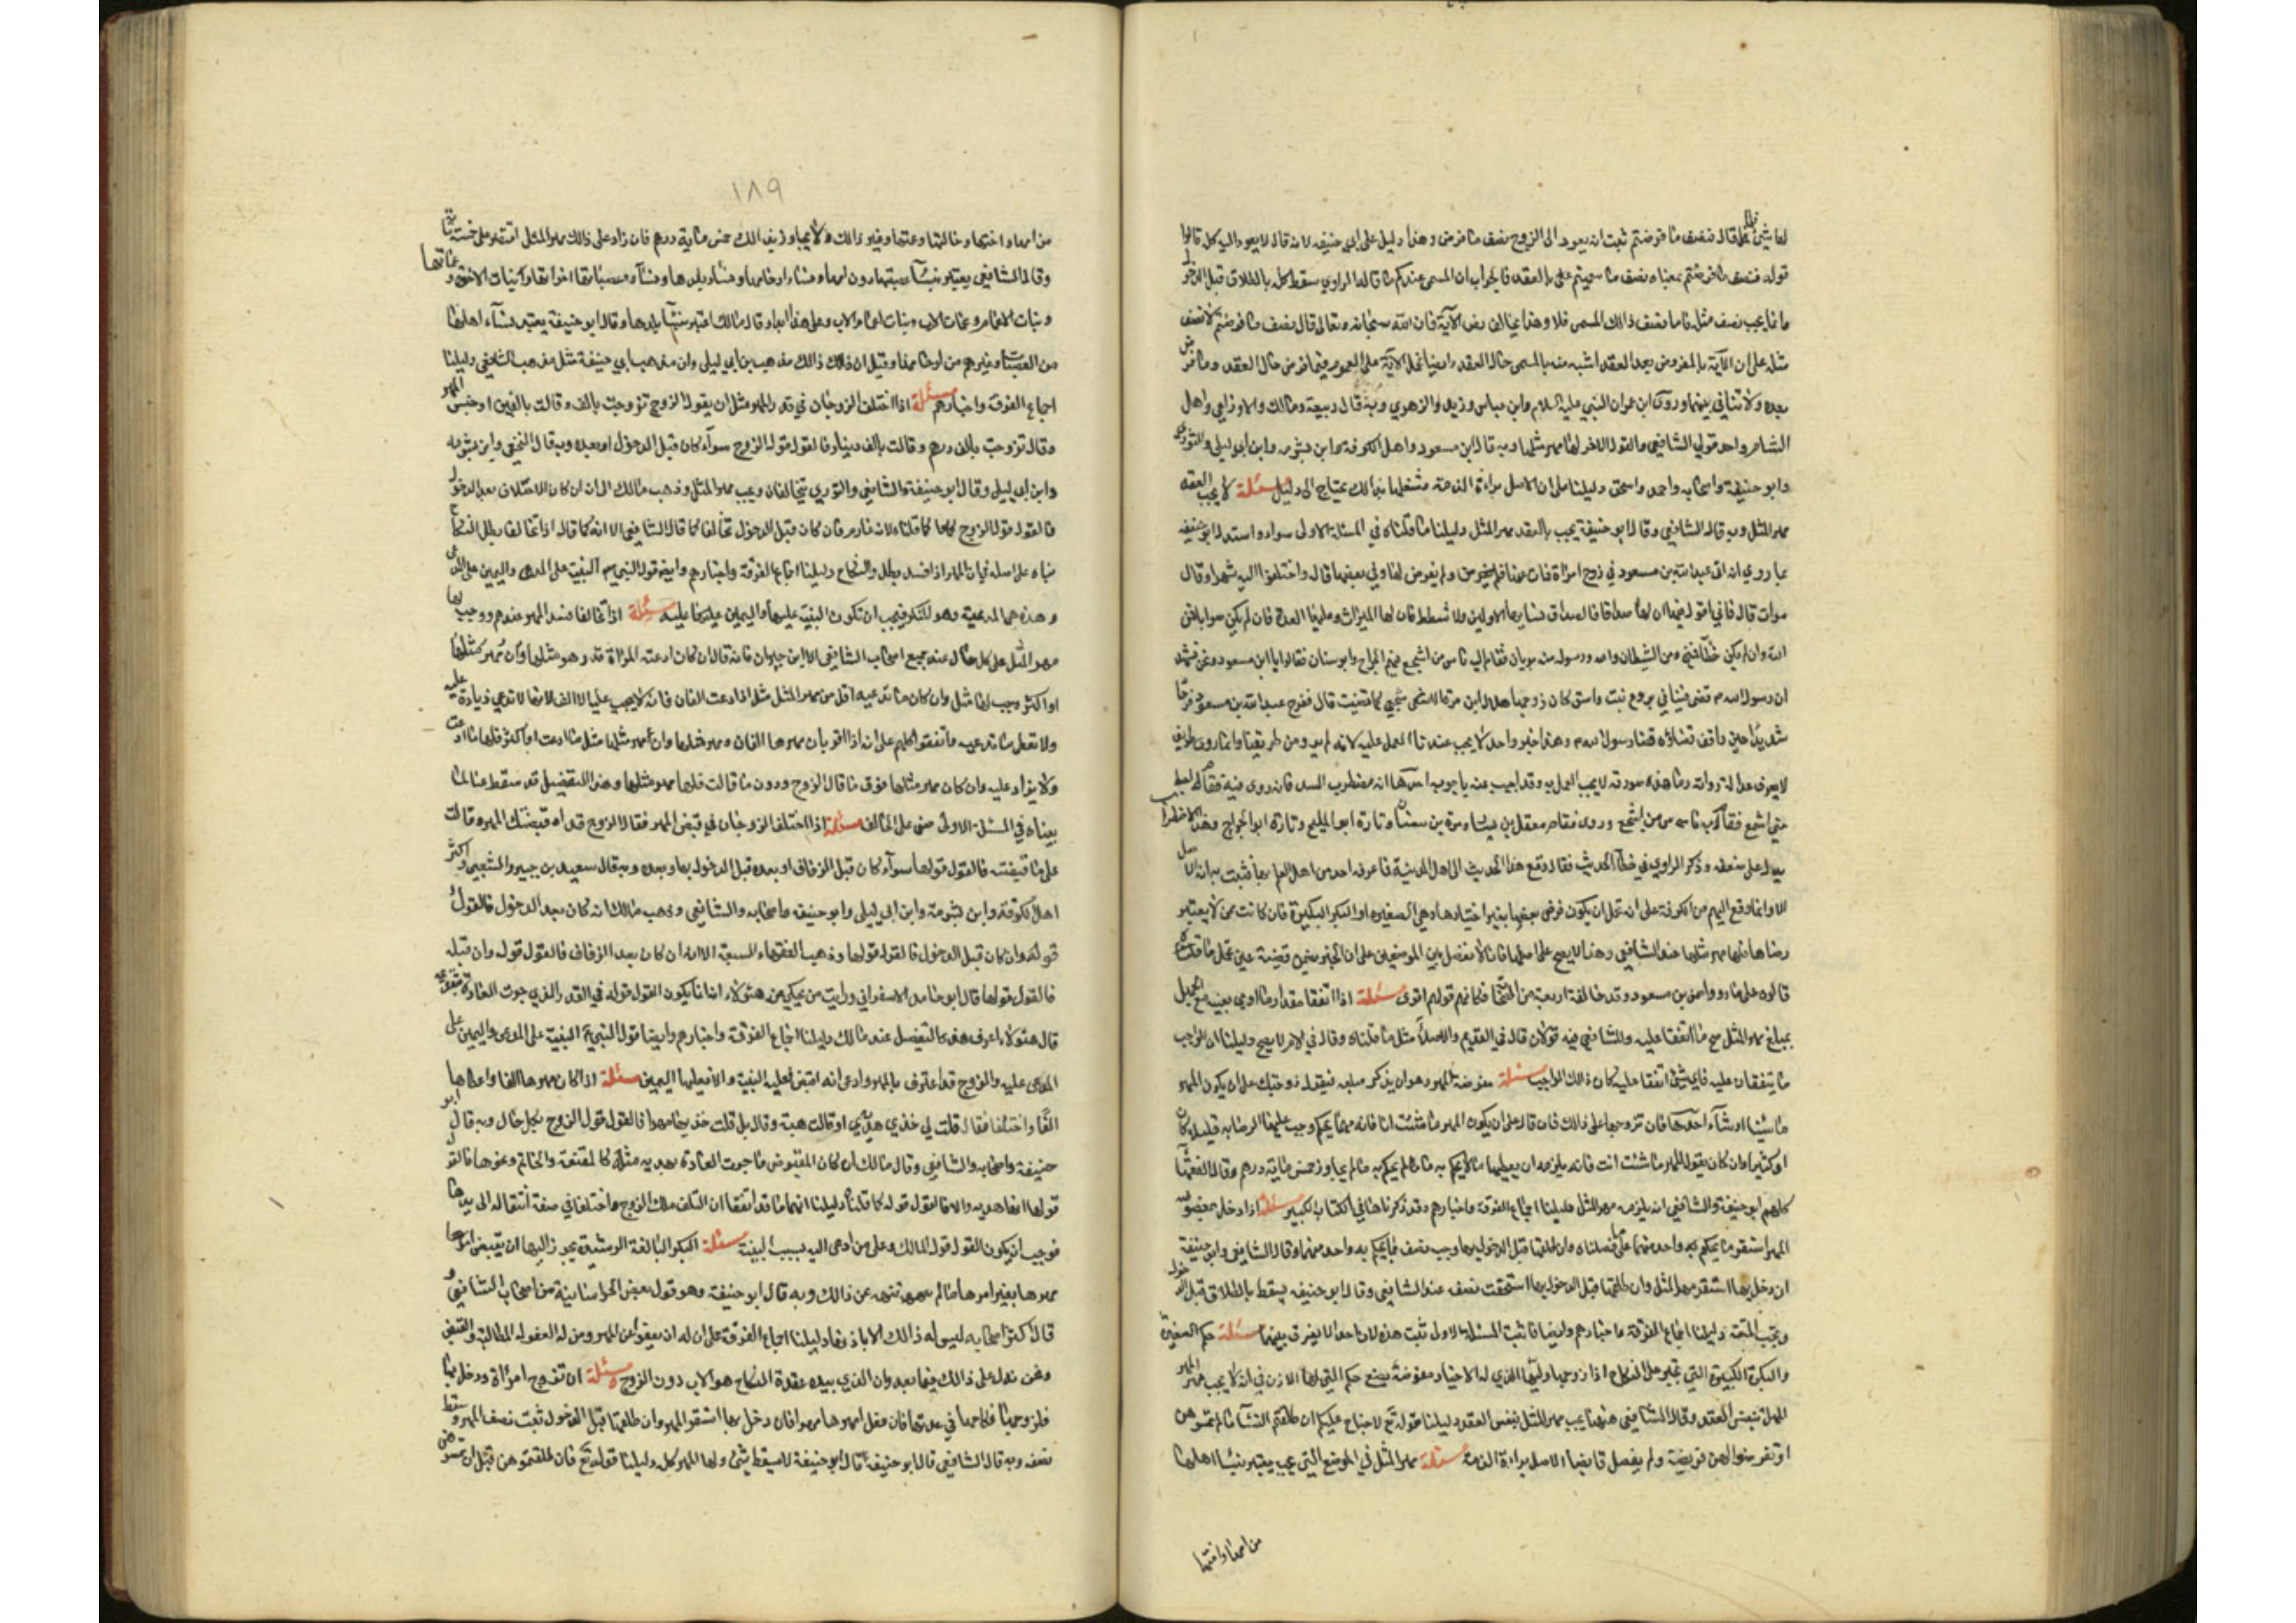 لها شيئ قال فنصف ما فرضتم ثبت انه يعود الى الزوج نصف ما فرض وهذا دليل على ابي حنيفه لانه قال لا يعود اليه كله قالوا
قوله فنصف ما فرضتم معناه نصف ما سميتم على بالعقد فالجواب ان المسمى عندكم قال الراوي سقط كله بالطلاق قبل الدخول
وانما يجب نصف مثله فاما نصف ذالك المسمى فلا وهذا يخالف نص الآية فان الله سبحانه وتعالى قال نصف ما فرضتم لا نصف
مثله على ان الآية بالمفروض بعد العقد اشبه منه بالمسمى حال العقد وايضا تحمل الآية على العموم فيما فرض حال العقد وما فرض
بعده ولا تنافي بينهما وروى ابن عمر ان النبي عليه السلام وابن عباس وزيد والزهري وبه قال ربيعة ومالك والاوزاعي واهل
الشام واحد قولي الشافعي والقول الاخر لها مهر مثلها وبه قال ابن مسعود واهل الكوفة وابن شبرمه وابن ابي ليلى والثوري
وابو حنيفة واصحابه واحمد واسحق دليلنا على ان الاصل براءة الذمة وشغلها بذالك يحتاج الى دليل مسئلة لا يجب بالعقد
مهر المثل وبه قال الشافعي وقال ابو حنيفة يجب بالعقد مهر المثل دليلنا ما قلناه في المسئلة الاولى سواء واستدل ابو حنيفه
بما روي انه اتى عبد الله بن مسعود في زوج امراة فمات عنها ولم يفرض لها
موات قال فاني اقول فيها ان لها صداقا كصداق نسايها لا وكس ولا شطط فان لها الميراث وعليها العدة فان لم يكن صوابا فمن
الله وان لم يكن خطأ فمني ومن الشيطان والله ورسوله منه بريان فقام اليه ناس من اشجع فيهم الجراح وابو سنان فقالوا يا ابن مسعود ونحن نشهد
ان رسول الله ص قضى فينا في بروع بنت واشق كان زوجها هلال ابن مرة الاشجعي كما قضيت قال ففرح عبد الله بن مسعود فرحا
شديدا حين وافق قضاؤه قضاء رسول الله ص وهذا خبر واحد لا يجب عندنا العمل عليه لانه لم يرد من طريقنا وانما روى طريق
لا يعرف عدالة رواته وما هذه صورته لا يجب العمل به وقد اجيب عنه باجوبة احدها انه مضطرب السند فانه روى فيه فقام
حتى اشجع فقال ناس من اشجع وروى فقام معقل بن يسار ومرة بن سنان وتارة ابو المليح وتارة ابو الجراح وهذا الاضطراب
يدل على ضعفه وذكر الراوي في خطأ الحديث فقال وقع هذا الحديث الى اهل المدينة فما عرفه احد من اهل العلم بها فثبت به انه لا اصل
له وانما وقع اليهم من الكوفة على انه نحمل ان يكون فرض بضعها بغير اختيارها وهي الصغيره او البكر الكبيرة فان كانت ممن لا يعتبر
رضاها فلها مهر مثلها عند الشافعي وهذا لا يصح على اصلنا فانا لا نفصل بين الموضعين على ان الخبر يتضمن قضية عين نحمل ما قلناه
قالوه على ما رووا عن بن مسعود وقد خالفه اربعة من الصحابة فكانهم قولهم اقوى مسئلة اذا اتفقا مقدار ما او شيء بعينه مع الجهل
بمبلغ مهر المثل صح ما اتفقا عليه وللشافعي فيه قولان قال في القديم والاملاء مثل ما قلناه وقال في الام لا يصح دليلنا ان الواجب
ما يتفقان عليه فاي شيئ اتفقا عليه كان ذالك الواجب مسئلة مفوضة المهر وهو ان يذكر مبلغه فيقول زوجتك على ان يكون المهر
ما شئنا او شاء احدنا فان تزوجها على ذالك فان قال على ان يكون المهر ما شئت انا فانه مهما يحكم وجب عليها الرضا به قليلا كان
او كثيرا وان كان يقول المهر ما شئت انت فانه يلزمه ان يعطيها ما يحكم به ما لم يحاوز خمس ماية درهم وقال الفقهاء
كلهم ابو حنيفة والشافعي انه يلزمه مهر المثل دليلنا اجماع الفرقة واخبارهم وقد ذكرناها في الكتاب الكبير مسئلة اذا دخل بمفوضة
المهر استقر ما يحكم به واحد منهما على ما فصلناه وان طلقها قبل الدخول بها وجب نصف ما يحكم به واحد منهما وقال الشافعي وابو حنيفة
ان دخل بها استقر مهر المثل وان طلقها قبل الدخول بها استحقت نصفه عند الشافعي وقال ابو حنيفه يسقط بالطلاق قبل الدخول
ويجب المتعة دليلنا اجماع الفرقة واخبارهم وايضا فاذا ثبت المسئلة الاولى ثبت هذه لان احدا لا يفرق بينهما مسئلة حكم الصغيرة
والبكر الكبيرة التي تجبر على النكاح اذا زوجها وليها الذي له الاجبار مفوضة البضع حكم التي لها الاذن في انه لا يجب مهر المهر
المثل بنفس العقد وقال الشافعي هيهنا يجب مهر المثل بنفس العقد دليلنا قوله تع لا جناح عليكم ان طلقتم النساء ما لم تمسوهن
او تفرضوا لهن فريضة ولم يفصل وايضا الاصل براءة الذمة مسئلة مهر المثل في الموضع الذي يجب يعتبر بنساء اهلها
من امها واختها
١٨٩
من امها واختها وخالتها وعمتها وغير ذالك ولا يجاوز بذالك خمس ماية درهم فان زاد على ذالك مهر المثل اقتصر على خمسماية
وقال الشافعي يعتبر بنساء عصبتها دون امها ونساء ارحامها ونساء بلدها ونساء عصباتها اخواتها وبنات الاخوة وعماتها
وبنات الاعمام وعمات الاب وبنات اعمام الاب وعلى هذا ابدا وقال مالك اعتبر بنساء بلدها وقال ابو حنيفة يعتبر بنساء اهلها
من العصبات وغيرهم من ارحامها وقيل ان ذالك مذهب بن ابي ليلى وان مذهب ابي حنيفة مثل مذهب الشافعي دليلنا
اجماع الفرقة واخبارهم مسئلة اذا اختلف الزوجان في قدر المهر مثل ان يقول الزوج تزوجت بالف وقالت بالفين او جنس المهر
وقال تزوجت بالف درهم وقالت بالف دينار فالقول قول الزوج سواء كان قبل الدخول او بعده وبه قال النخعي وابن شبرمه
وابن ابي ليلى وقال ابو حنيفة والشافعي والثوري يتحالفان ويجب مهر المثل وذهب مالك الى ان كان الاختلاف بعد الدخول
فالقول قول الزوج كما قلناه لانه غارم فان كان قبل الدخول تحالفا كما قال الشافعي الا انه كما قال اذا تحالفا بطل النكاح
بناه على اصله فان المهر اذا فسد بطل والنكاح دليلنا اجماع الفرقة واخبارهم وايضا قول النبي ص البينة على المدعى واليمين على المدعى
وهذه هي المدعية وهو المنكر فيجب ان تكون البينة عليها واليمين عليه مسئلة اذا تحالفا فسد المهر عندهم ووجب لها
مهر المثل على كل حال عند جميع اصحاب الشافعي الا ابن خيران فانه قال ان كان ما ادعته المراة قدر وهو مثلها وكان مهر مثلها
او اكثر وجب لها مثل وان كان ما تدعيه اقل من مهر المثل مثل اذا ادعت الفان فانه لا يجب عليه الا الف لانها لا تدعي زيادة عليه
ولا تعطى ما تدعيه واتفقوا كلهم على انه اذا اقر بان مهرها الفان ومهر مثلها وان مهر مثلها مثل ما ادعت او اكثر فلها ما ادعت
ولا يزاد عليه وان كان مهر مثلها فوق ما قال الزوج ودون ما قالت فلها مهر مثلها وهذا التفصيل قد سقط عنا لما
بيناه في المسئلة الاولى صح على المخالف مسئلة اذا اختلف الزوجان في قبض المهر فقال الزوج قد اقبضتك المهر وقالت
على ما قبضته فالقول قولها سواء كان قبل الزفاف او بعده قبل الدخول بها وبعده وبه قال سعيد بن جبير والشعبي واكثر
اهل الكوفة وابن شبرمة وابن ابي ليلى وابو حنيفه واصحابه والشافعي وذهب مالك انه كان بعد الدخول فالقول
قوله وان كان قبل الدخول فالقول قولها وذهب الفقهاء السبعة الا انه ان كان بعد الزفاف فالقول قوله وان قبله
فالقول قولها قال ابو حامد الاسفرايني ورايت من يحكي عن هؤلاء انما يكون القول قوله في القدر الذي جرت العادة بتقديمه
قال هؤلاء اعرف هذا التفصيل عند مالك دليلنا اجماع الفرقة واخبارهم وايضا قول النبي ص البينة على المدعى واليمين على
المدعى عليه والزوج قد اعترف بالمهر وادعى انه اقبض فعليه البينة والا فعليها اليمين مسئلة اذا كان مهرها الفا واعطاها
الفا واختلفا فقال قلت لي خذي هدية او قالت هبة وقال بل قلت خذيها مهرا فالقول قول الزوج بكل حال وبه قال ابو
حنيفة واصحابه والشافعي وقال مالك ان كان المقبوض ما جرت العادة بهدية مثله كالمقنعة والخاتم ونحوها فالقول
قولها انها هدية والا فالقول قوله كما قلناه دليلنا انهما قد اتفقا ان التلف ملك الزوج واختلفا في صفة انتقاله الى يدها
فوجب ان يكون القول قول المالك وعلى من ادعى اليه بسبب البينة مسئلة البكر البالغة الرشيدة يجوز لابيها ان يقبض مهرها
مهرها بغير امرها ما لم تنهه عن ذالك وبه قال ابو حنيفة وهو قول بعض الخراسانية من اصحاب الشافعي و
قال اكثر اصحابه ليس له ذالك الا باذنها دليلنا اجماع الفرقة على ان له ان يعفو عن المهر ومن له العفو له المطالبة والقبض
ونحن ندل على ذالك فيما بعد وان الذي بيده عقدة النكاح هو الاب دون الزوج مسئلة ان تزوج امراة ودخل بها
نصفه وبه قال الشافعي قال ابو حنيفة لا يسقط شيئ ولها المهر كله دليلنا قوله تع فان طلقتموهن قبل ان تمسوهن